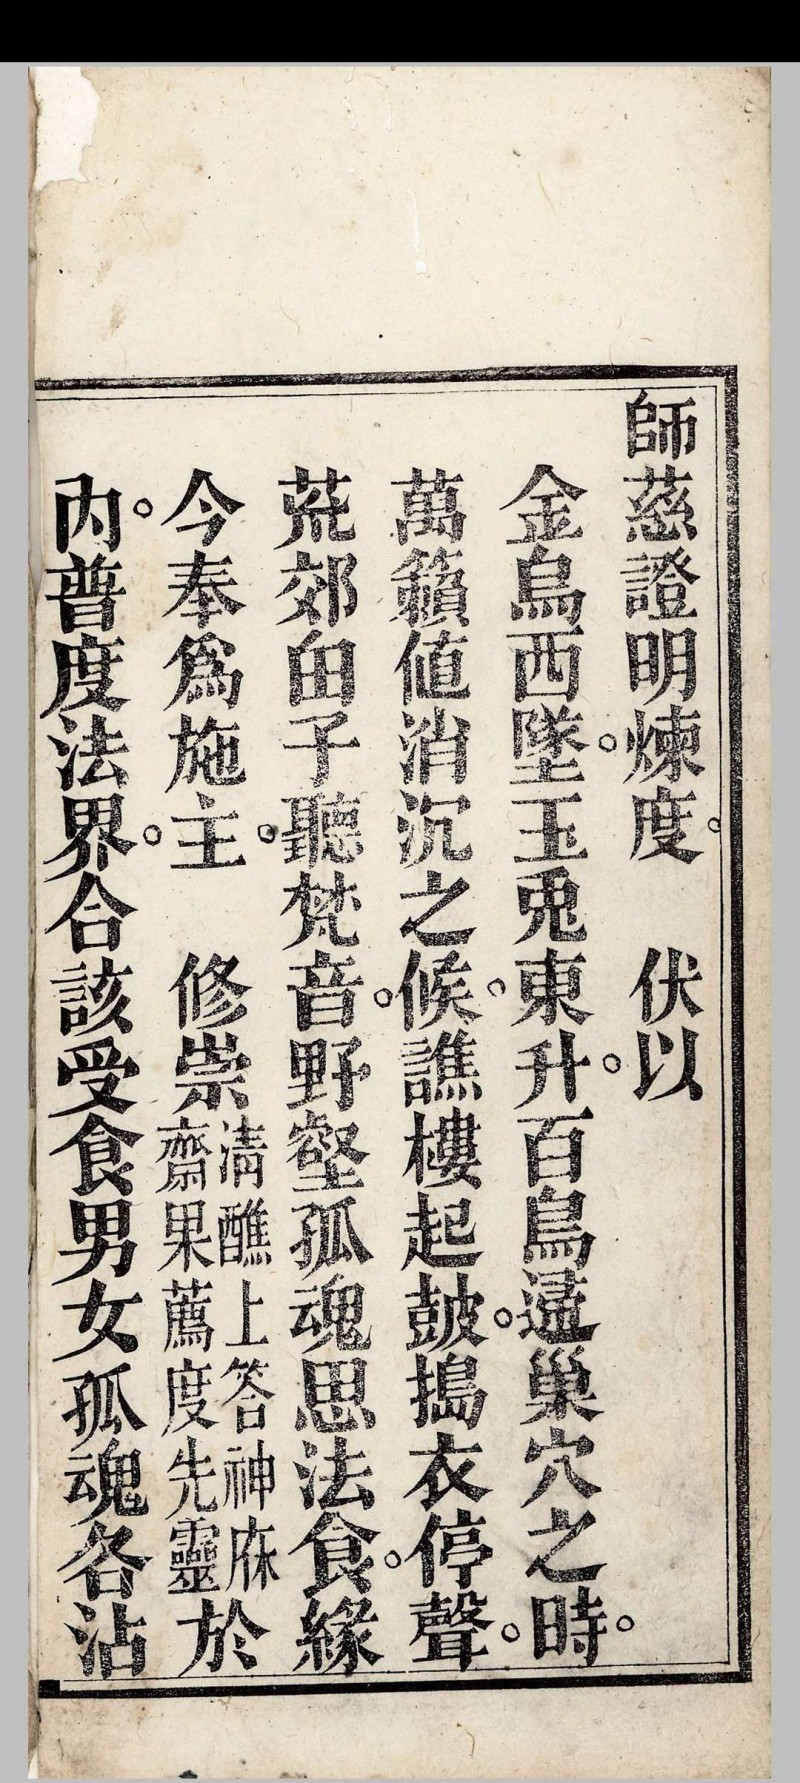 師慈證明煉度。　伏以
金烏西墜。玉兎東升。百鳥還巢穴之時。
萬籟値消沉之候。譙樓起皷。搗衣停聲。
荒郊田子聽梵音。野壑孤魂思法食。緣
今奉爲施主。　修崇清醮上答神庥齋果薦度先靈於
內。普度法界。合該受食男女孤魂各沾